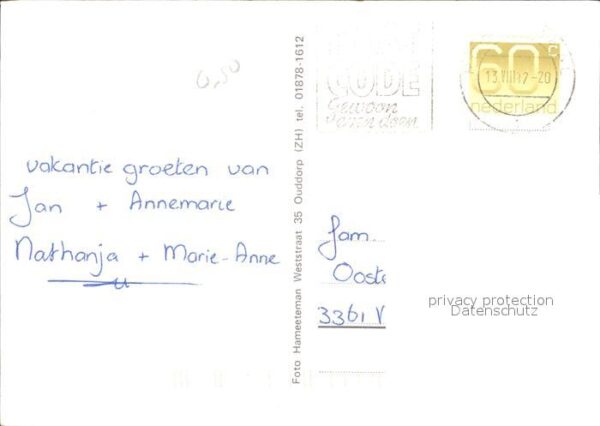 0,50
vakantie groeten van
Jan + Annemarie
Nathanja + Marie-Anne
Foto Hameeteman Weststraat 35 Ouddorp (ZH) tel. 01878-1612
CODE
Gewoon
even doen
60 c
nederland
13.VIII
-20
Fam.
Ooste
3361 V
privacy protection
Datenschutz